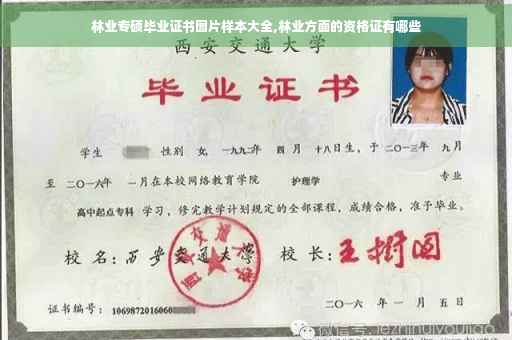 林业专硕毕业证书图片样本大全,林业方面的资格证有哪些
西安交通大学
毕业证书
学生 性别 女, 一九九二年 四 月 十八日生, 于 二〇一三年 九月
至 二〇一六年 一月在本校网络教育学院 护理学 专业
高中起点专科 学习, 修完教学计划规定的全部课程, 成绩合格, 准予毕业。
校 名: 西安交通大学 校 长: 王树国
西安交通大学
证书编号: 1069872016060
二〇一六 年 一 月 五 日
微信号: jezhinuiyoujiao